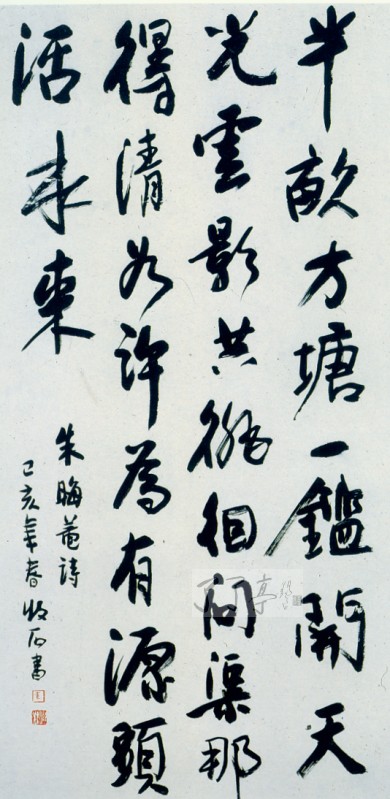 半畝方塘一鑑開天
光雲影共徘徊問渠那
得清如許為有源頭
活水來
朱晦菴詩
己亥年春牧石書